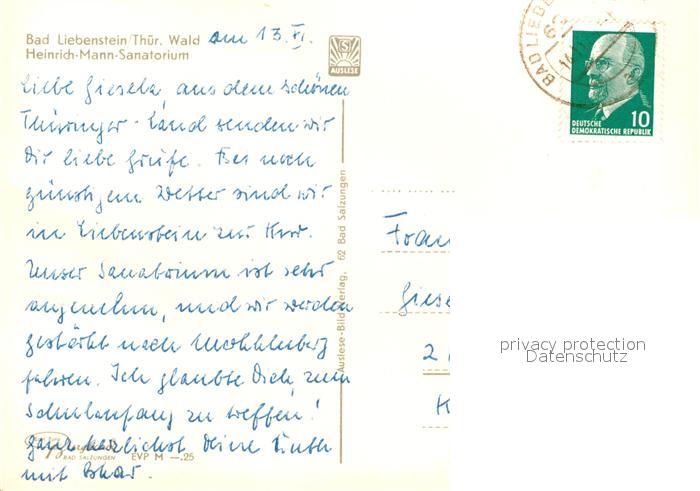 Bad Liebenstein/Thür. Wald am 13. XI.
Heinrich-Mann-Sanatorium
Liebe Giesela, aus dem schönen
Thüringer-Land senden wir
Dir liebe Grüße. Bei noch
günstigem Wetter sind wir
in Liebenstein zur Kur.
Unser Sanatorium ist sehr
angenehm, und wir werden
gestärkt nach
fahren. Ich glaubte Dich zum
Schulanfang zu treffen!
Ganz herzlichst Deine Ruth
mit Oskar.
BAD SALZUNGEN EVP M —.25
AUSLESE
Auslese-Bild-Verlag, 62 Bad Salzungen
BAD LIEBE
10
DEUTSCHE
DEMOKRATISCHE REPUBLIK
Frau
Giese
2
K
privacy protection
Datenschutz